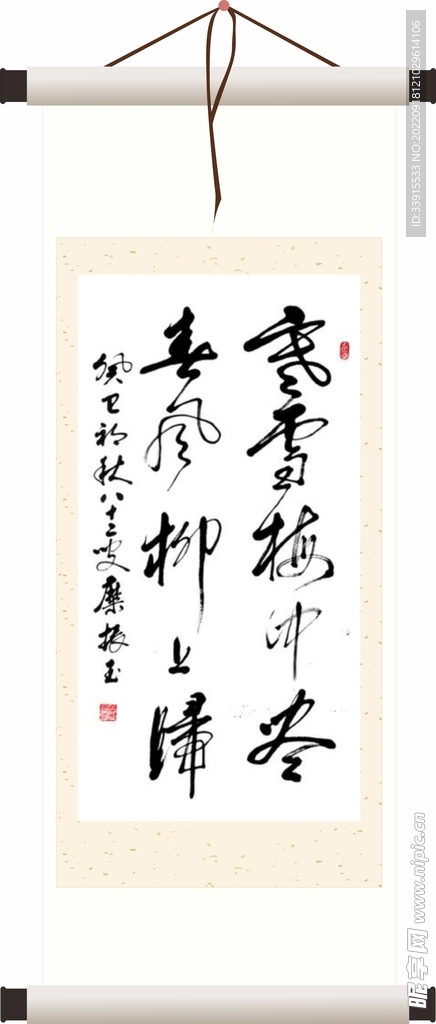 寒雪梅中尽
春风柳上归
癸卫初秋八十二叟糜振玉
ID:33915533 NO:20220918121029614106
昵享网 www.nipic.cn